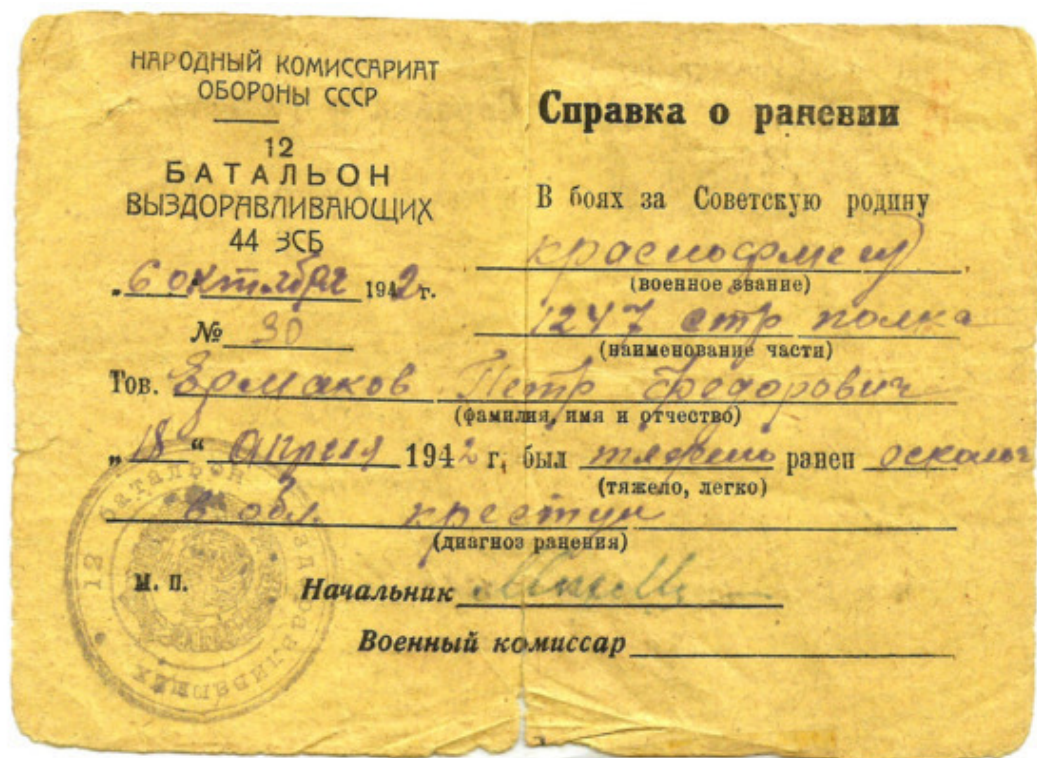 НАРОДНЫЙ КОМИССАРИАТ
ОБОРОНЫ СССР
12
БАТАЛЬОН
ВЫЗДОРАВЛИВАЮЩИХ
44 ЗСБ
„6 октября 1942 г.
№ 30
Справка о ранении
В боях за Советскую родину
(военное звание)
1247 стр полка
(наименование части)
Тов. Ермаков Петр Федорович
(фамилия, имя и отчество)
„18“ апреля 1942 г. был ранен
(тяжело, легко)
в обл.
(диагноз ранения)
М. П.
Начальник
Военный комиссар
12 батальон выздоравливающих